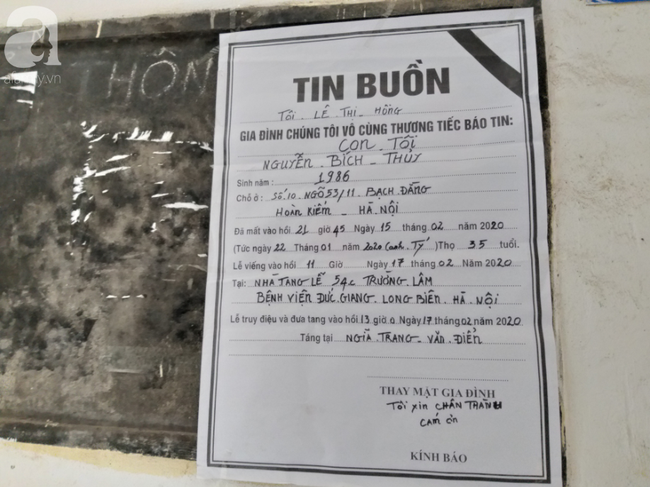 a
afamily.vn
THÔN
TIN BUỒN
Tôi LÊ THỊ HỒNG
GIA ĐÌNH CHÚNG TÔI VÔ CÙNG THƯƠNG TIẾC BÁO TIN:
CON TÔI
NGUYỄN BÍCH THỦY
Sinh năm: 1986
Chỗ ở: Số 10 NGÕ 53/11 BẠCH ĐẰNG
HOÀN KIẾM - HÀ NỘI
Đã mất vào hồi 21 giờ 45 Ngày 15 tháng 02 năm 2020
(Tức ngày 22 Tháng 01 năm 2020 (Canh Tý) Thọ 35 tuổi.
Lễ viếng vào hồi 11 Giờ Ngày 17 tháng 02 Năm 2020
Tại: NHÀ TANG LỄ 54C TRƯỜNG LÂM
BỆNH VIỆN ĐỨC GIANG LONG BIÊN HÀ NỘI
Lễ truy điệu và đưa tang vào hồi 13 giờ 0 Ngày 17 tháng 02 năm 2020
Táng tại NGHĨA TRANG VĂN ĐIỂN
THAY MẶT GIA ĐÌNH
Tôi xin CHÂN THÀNH
CẢM ƠN
KÍNH BÁO